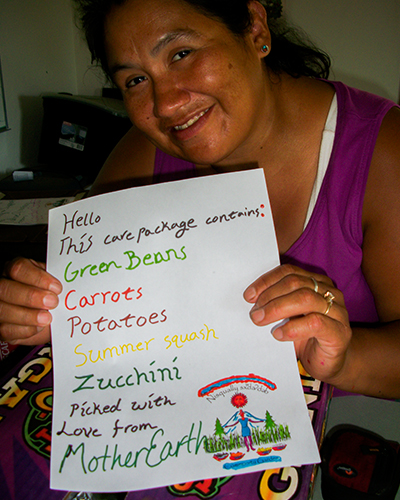 Hello
This care package contains:
Green Beans
Carrots
Potatoes
Summer squash
Zucchini
Picked with
Love from
MotherEarth